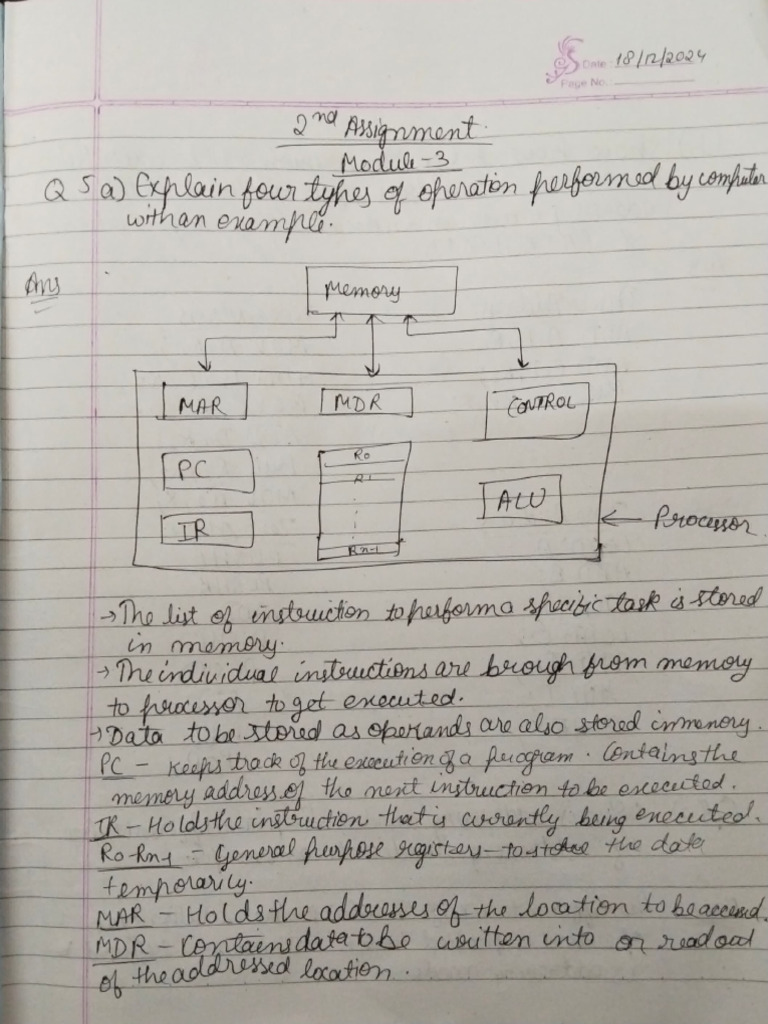 Date: 18/12/2024
Page No.
2nd Assignment
Module-3
Q 5 a) Explain four types of operation performed by computer
with an example.
Ans
Memory
MAR MDR CONTROL
PC R0
R1
IR ALU
Rn-1
← Processor
→ The list of instruction to perform a specific task is stored
in memory.
→ The individual instructions are brough from memory
to processor to get executed.
→ Data to be stored as operands are also stored in memory.
PC - Keeps track of the execution of a program. Contains the
memory address of the next instruction to be executed.
IR - Holds the instruction that is currently being executed.
R0-Rn-1 - General purpose registers - to store the data
temporarily.
MAR - Holds the addresses of the location to be accessed.
MDR - Contains data to be written into or read out
of the addressed location.